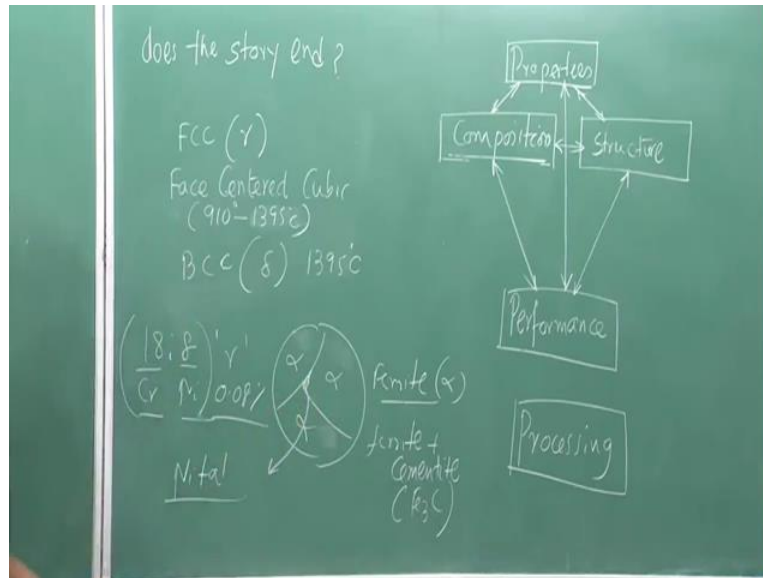 does the story end?
FCC (γ)
Face Centered Cubic
(910°-1395°c)
BCC (δ) 1395°C
(18:8) 'γ'
Cr Ni 0.08%
Nital
α α
α
Ferrite (α)
ferrite +
Cementite
(Fe3C)
Properties
Composition
Structure
Performance
Processing